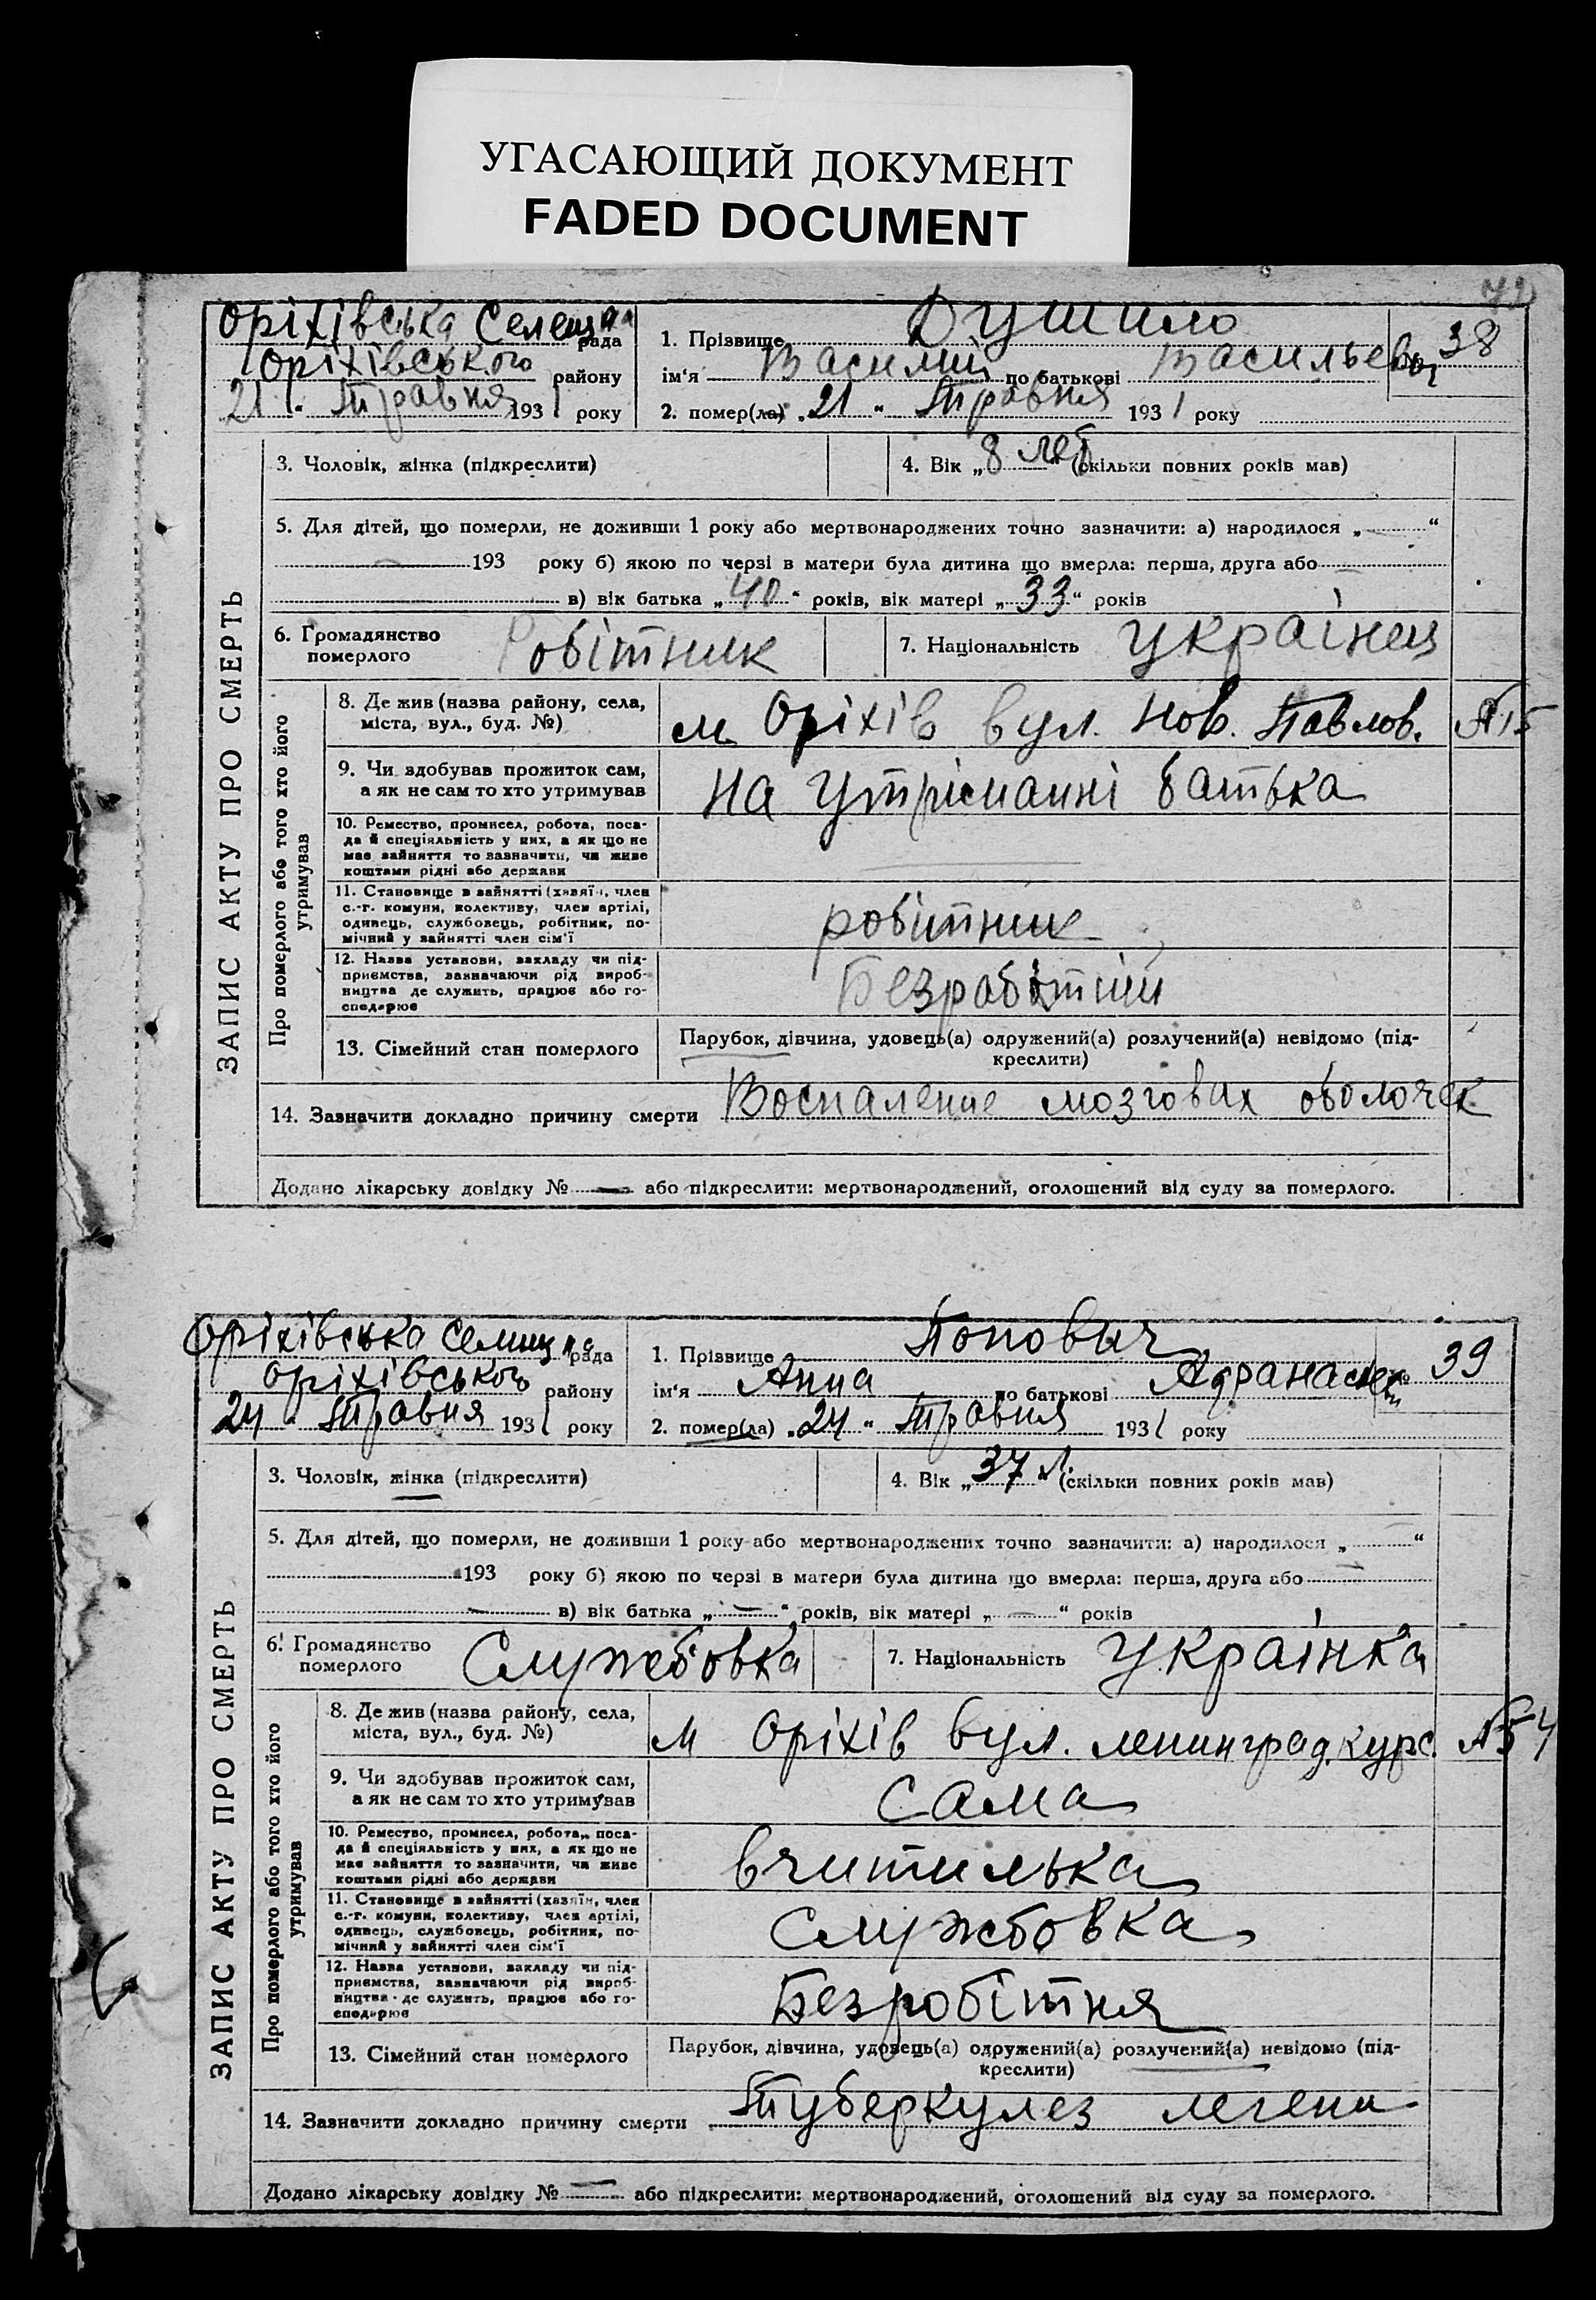 УГАСАЮЩИЙ ДОКУМЕНТ
FADED DOCUMENT
Оріхівська Селещна рада
Оріхівського району
21 " Травня 1931 року
1. Прізвище Душило
ім'я Василий по батькові Васильевич
2. помер(ла) „21 " Травня 1931 року
38
3. Чоловік, жінка (підкреслити)
4. Вік „8 лет" (скільки повних років мав)
5. Для дітей, що померли, не доживши 1 року або мертвонароджених точно зазначити: а) народилося „ "
193 року б) якою по черзі в матери була дитина що вмерла: перша, друга або
в) вік батька „40" років, вік матері „33" років
6. Громадянство померлого Робітник
7. Національність Українец
ЗАПИС АКТУ ПРО СМЕРТЬ
Про померлого або того хто його утримував
8. Де жив (назва району, села, міста, вул., буд. №)
м Оріхів вул. Нов. Павлов. №15
9. Чи здобував прожиток сам, а як не сам то хто утримував
на утріманні батька
10. Ремество, промисел, робота, посада й спеціяльність у них, а як що не має зайняття то зазначити, чи живе коштами рідні або держави
11. Становище в зайнятті (хазяїн, член с.-г. комуни, колективу, член артілі, одинець, службовець, робітник, помічний у зайнятті член сім'ї
робітник
12. Назва установи, закладу чи підприємства, зазначаючи рід виробництва де служить, працює або господарює
Безработній
13. Сімейний стан померлого
Парубок, дівчина, удовець(а) одружений(а) розлучений(а) невідомо (підкреслити)
14. Зазначити докладно причину смерти Воспаление мозговых оболочек
Додано лікарську довідку № — або підкреслити: мертвонароджений, оголошений від суду за померлого.
Оріхівська Селищна рада
Оріхівського району
24 " Травня 1931 року
1. Прізвище Попович
ім'я Анна по батькові
2. помер(ла) „24 " Травня 1931 року
39
3. Чоловік, жінка (підкреслити)
4. Вік „37 л." (скільки повних років мав)
5. Для дітей, що померли, не доживши 1 року або мертвонароджених точно зазначити: а) народилося „ "
193 року б) якою по черзі в матери була дитина що вмерла: перша, друга або —
— в) вік батька „—" років, вік матері „—" років
6. Громадянство померлого Службовка
7. Національність Українка
ЗАПИС АКТУ ПРО СМЕРТЬ
Про померлого або того хто його утримував
8. Де жив (назва району, села, міста, вул., буд. №)
м Оріхів вул. ленинград.курс. №54
9. Чи здобував прожиток сам, а як не сам то хто утримував
сама
10. Ремество, промисел, робота, посада й спеціяльність у них, а як що не має зайняття то зазначити, чи живе коштами рідні або держави
вчителька
11. Становище в зайнятті (хазяїн, член с.-г. комуни, колективу, член артілі, одинець, службовець, робітник, помічний у зайнятті член сім'ї
Службовка
12. Назва установи, закладу чи підприємства, зазначаючи рід виробництва де служить, працює або господарює
Безробітня
13. Сімейний стан померлого
Парубок, дівчина, удовець(а) одружений(а) розлучений(а) невідомо (підкреслити)
14. Зазначити докладно причину смерти Туберкулез легени
Додано лікарську довідку № — або підкреслити: мертвонароджений, оголошений від суду за померлого.